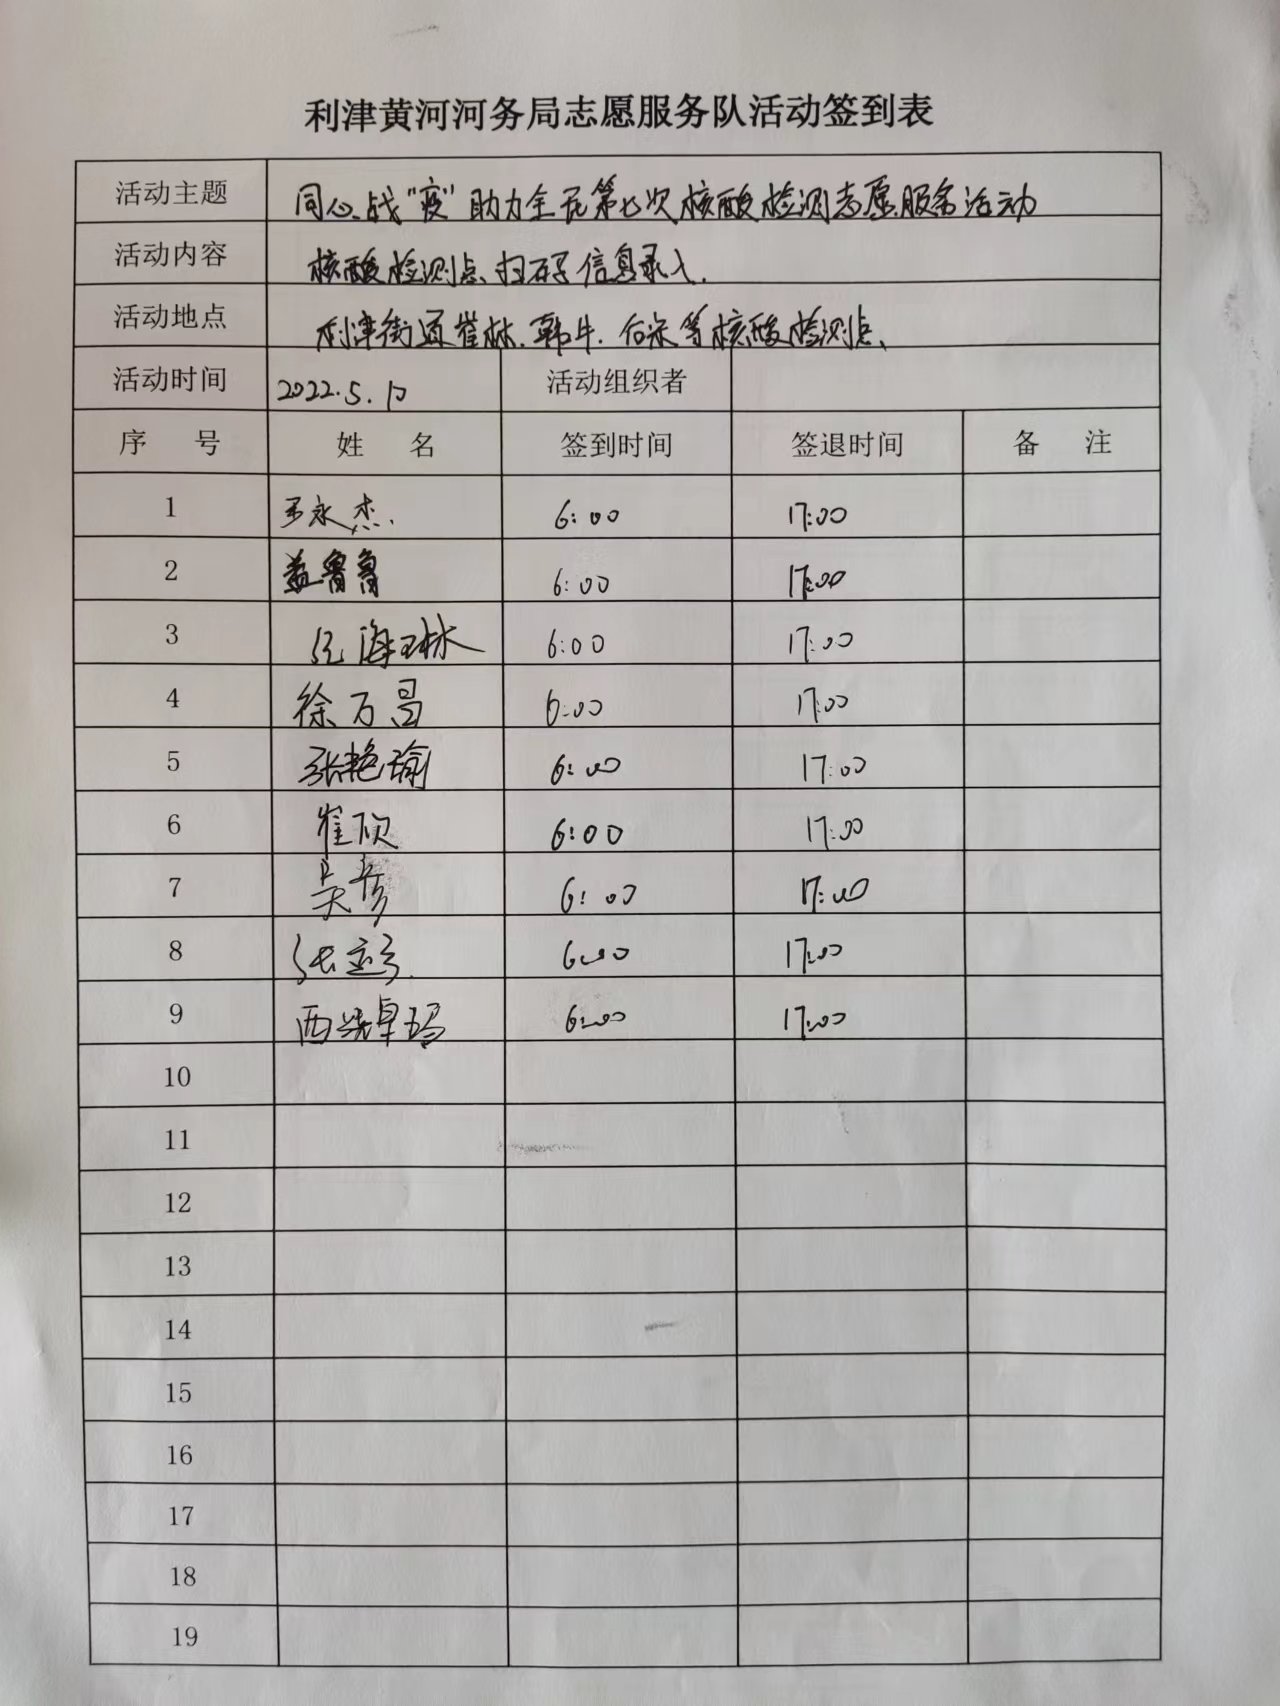 利津黄河河务局志愿服务队活动签到表
活动主题 同心战“疫”助力全民第七次核酸检测志愿服务活动
活动内容 核酸检测点、扫码信息录入.
活动地点 利津街道崔林.韩牛. 等核酸检测点、
活动时间 2022.5.10 活动组织者
序 号 姓 名 签到时间 签退时间 备 注
1 王永杰. 6:00 17:00
2 盖鲁鲁 6:00 17:00
3 海琳 6:00 17:00
4 徐万昌 6:00 17:00
5 张艳瑜 6:00 17:00
6 崔硕 6:00 17:00
7 吴彦 6:00 17:00
8 张 6:00 17:00
9 西 卓玛 6:00 17:00
10
11
12
13
14
15
16
17
18
19